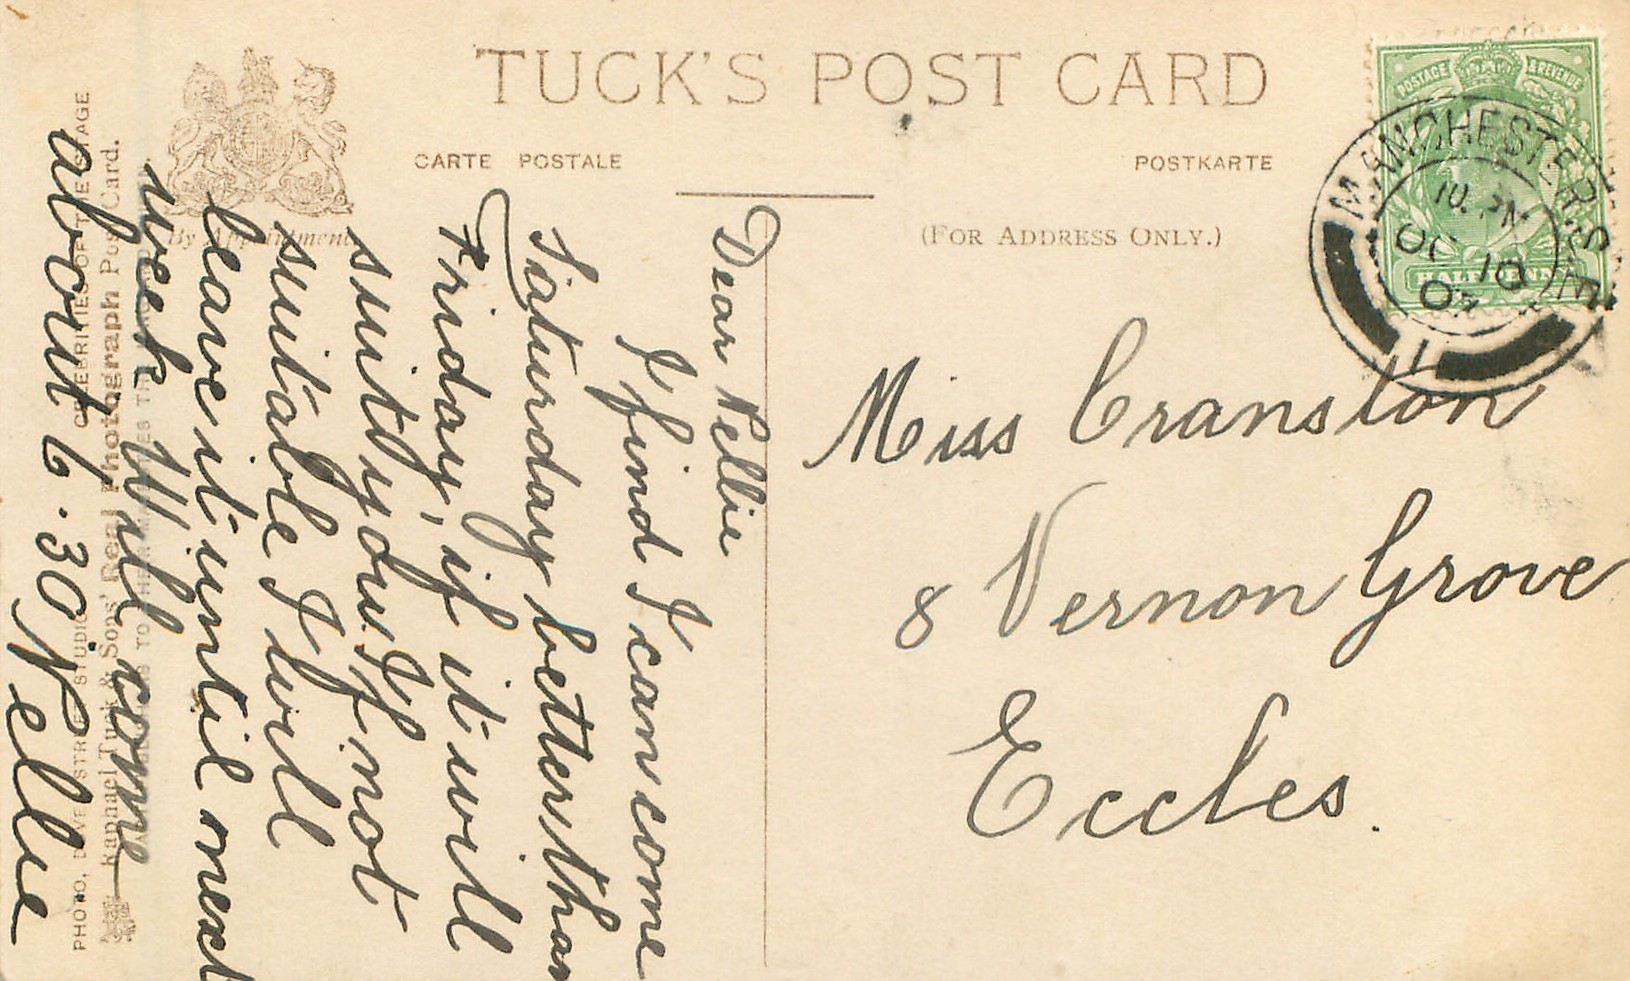 TUCK'S POST CARD
CARTE POSTALE
POSTKARTE
By Appointment
(FOR ADDRESS ONLY.)
POSTAGE & REVENUE
HALFPENNY
MANCHESTER. S.E
10. PM
OC 10
07
1
Dear Nellie
I find I can come
Saturday better than
Friday, if it will
suit you. If not
suitable I will
leave it until next
week Will come
about 6.30 Nellie
Miss Cranston
8 Vernon Grove
Eccles.
Raphael Tuck & Sons' Real Photograph Post Card.
CELEBRITIES OF THE STAGE
PHOTO, STUDIOS